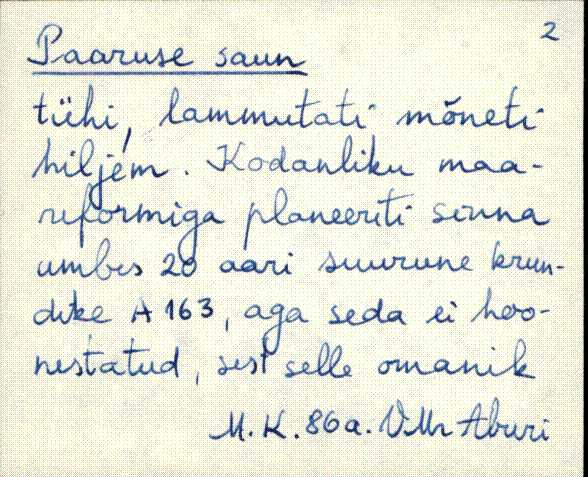 2
Paaruse saun
tühi, lammutati mõneti
hiljem. Kodanliku maa-
reformiga planeeriti sinna
umbes 20 aari suurune krun-
dike A 163, aga seda ei hoo-
nestatud, sest selle omanik
M. K. 86a. VMr Aburi